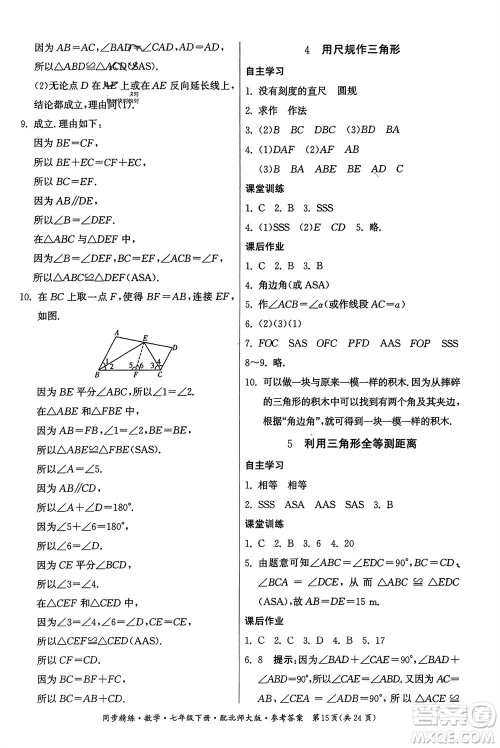 因为 AB=AC,∠BAD=∠CAD,
所以△ABD≌△ACD(SAS).
(2)无论点 D 在 AE 上或在 AE 反向延长线上,
结论都成立,理由同(1).
9. 成立.理由如下:
因为 BE=CF,
所以 BE+EC=CF+EC,
所以 BC=EF.
因为 AB∥DE,
所以∠B=∠DEF.
在△ABC 与△DEF 中,
∠A=∠D,∠B=∠DEF,BC=EF,
所以△ABC≌△DEF
10. 在 BC 上取一点 F,使得 BF=AB,连接 EF,
如图.
A
E
D
1
2
5
6
3
4
B
F
C
因为 BE 平分∠ABC,
所以∠1=∠2.
在△ABE 和△FBE 中,
因为 AB=FB,∠1=∠2,BE=BE,
所以△ABE≌△FBE(SAS),
所以∠A=∠5.
因为 AB∥CD,
所以∠A+∠D=180°.
因为∠5+∠6=180°,
所以∠6=∠D.
因为 CE 平分∠BCD,
所以∠3=∠4.
在△CEF 和△CED 中,
所以△CEF≌△CED(AAS),
所以 CF=CD.
因为 BC=BF+CF,
所以 BC=AB+CD.
4 用尺规作三角形
自主学习
1. 没有刻度的直尺 圆规
2. 求作 作法
3. (2)B (3)A C
4. (1)DAF (2)AF AC
(3)B BAD BAC
课堂训练
1. C 2. B 3. SSS
4. (1)SSS (2)E CD 5. 略.
课后作业
1. C 2. B 3. A
4. 角边角(ASA)
5. 作∠ACB=∠α(或作线段 AC=a)
6. (2)(3)(1)
7. FOC SAS OFC PFD AAS SOF SSS
8~9. 略.
10. 可以做一块与原来一模一样的积木.从摔碎
的三角形的积木中可以得到两个角及其夹边,
根据“角边角”,就可以做出一块一模一样的
积木.
5 利用三角形全等测距离
自主学习
1. 相等 相等
2. SSS ASA AAS SAS 3. B
课堂训练
1. C 2. B 3. 15 4. 20
5. 由题意可知∠ABC=∠EDC=90°,
∠ACB=∠ECD=90°,BC=DC,
从而△ABC≌△EDC
(ASA),所以 AB=DE=15 m.
课后作业
1. C 2. B 3. B 4. B 5. 17
6. 8 提示:易得∠ABD=∠ACE=90°,
同步精练·数学·七年级下册·配北师大版·参考答案 第15页(共24页)